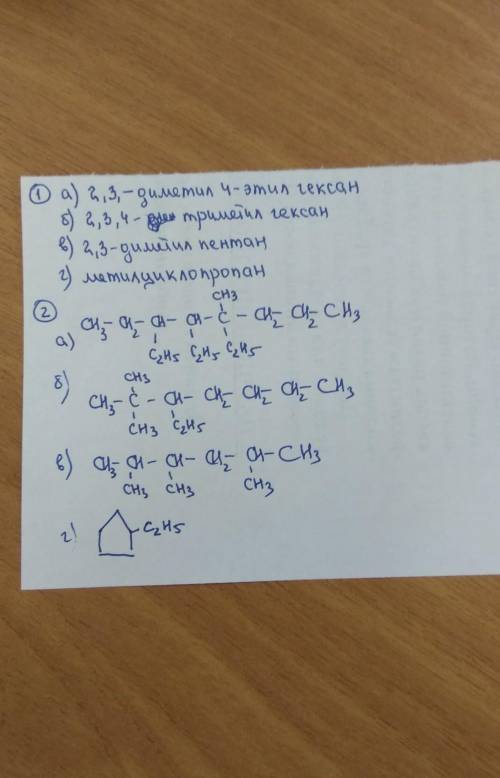 ① а) 2,3,-диметил 4-этил гексан
б) 2,3,4- триметил гексан
в) 2,3-диметил пентан
г) метилциклопропан
②
CH3
а) CH3-CH2-CH-CH-C-CH2-CH2-CH3
C2H5 C2H5 C2H5
б)
CH3
CH3-C-CH-CH2-CH2-CH2-CH3
CH3 C2H5
в) CH3-CH-CH-CH2-CH-CH3
CH3 CH3 CH3
г) -C2H5